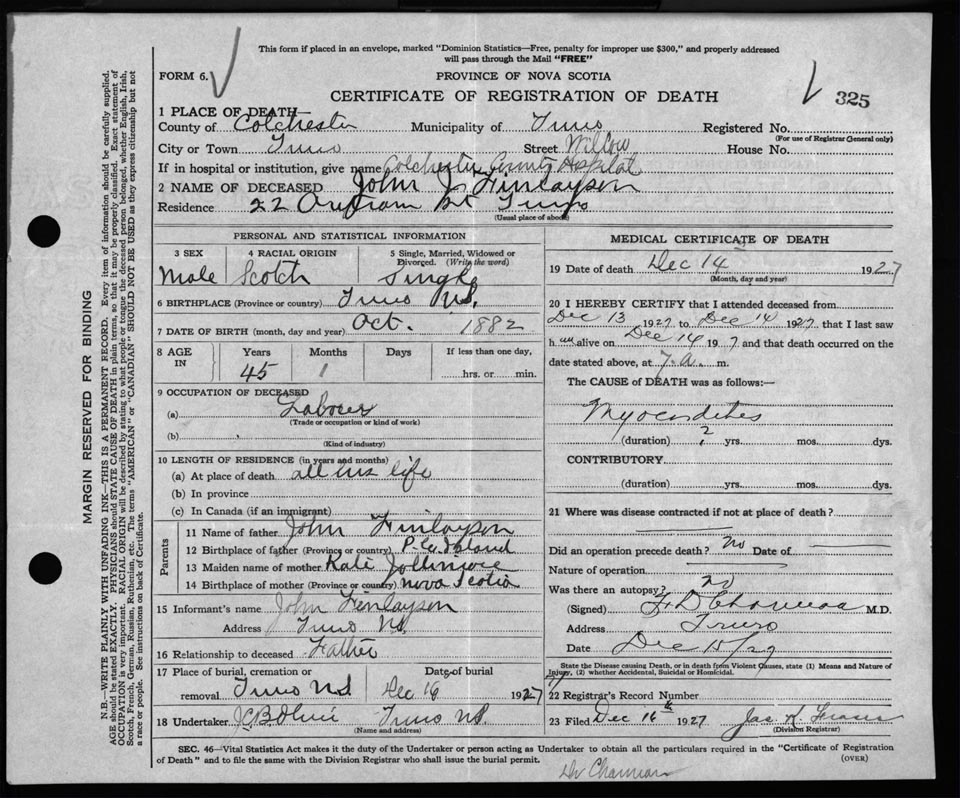 This form if placed in an envelope, marked "Dominion Statistics—Free, penalty for improper use $300," and properly addressed
will pass through the Mail "FREE"
FORM 6.
PROVINCE OF NOVA SCOTIA
CERTIFICATE OF REGISTRATION OF DEATH
325
1 PLACE OF DEATH—
County of Colchester Municipality of Truro Registered No.
(For use of Registrar General only)
City or Town Truro Street Willow House No.
If in hospital or institution, give name Colchester County Hospital
2 NAME OF DECEASED John J. Finlayson
Residence 22 Outram St Truro
(Usual place of abode)
PERSONAL AND STATISTICAL INFORMATION
3 SEX Male
4 RACIAL ORIGIN Scotch
5 Single, Married, Widowed or Divorced. (Write the word) Single
6 BIRTHPLACE (Province or country) Truro N.S.
7 DATE OF BIRTH (month, day and year) Oct. 1882
8 AGE IN Years 45 Months 1 Days If less than one day, hrs. or min.
9 OCCUPATION OF DECEASED
(a) Labourer
(Trade or occupation or kind of work)
(b)
(Kind of industry)
10 LENGTH OF RESIDENCE (in years and months)
(a) At place of death all his life
(b) In province
(c) In Canada (if an immigrant)
Parents
11 Name of father John Finlayson
12 Birthplace of father (Province or country) P.E. Island
13 Maiden name of mother Kate Jollimore
14 Birthplace of mother (Province or country) Nova Scotia
15 Informant's name John Finlayson
Address Truro N.S.
16 Relationship to deceased Father
17 Place of burial, cremation or removal Truro N.S. Date of burial Dec 16 1927
18 Undertaker Truro N.S.
(Name and address)
MEDICAL CERTIFICATE OF DEATH
19 Date of death Dec 14 1927
(Month, day and year)
20 I HEREBY CERTIFY that I attended deceased from
Dec 13 1927 to Dec 14 1927 that I last saw
h im alive on Dec 14 19 7 and that death occurred on the
date stated above, at 7. a. m.
The CAUSE of DEATH was as follows:—
Myocarditis
(duration) ? yrs. mos. dys.
CONTRIBUTORY
(duration) yrs. mos. dys.
21 Where was disease contracted if not at place of death?
Did an operation precede death? No Date of
Nature of operation
Was there an autopsy? no
(Signed) M.D.
Address Truro
Date Dec 15/27
State the Disease causing Death, or in death from Violent Causes, state (1) Means and Nature of
Injury, (2) whether Accidental, Suicidal or Homicidal.
22 Registrar's Record Number
23 Filed Dec 16th 1927 Jas. K. Fraser
(Division Registrar)
SEC. 46—Vital Statistics Act makes it the duty of the Undertaker or person acting as Undertaker to obtain all the particulars required in the "Certificate of Registration
of Death" and to file the same with the Division Registrar who shall issue the burial permit.
(OVER)
MARGIN RESERVED FOR BINDING
N.B.—WRITE PLAINLY WITH UNFADING INK—THIS IS A PERMANENT RECORD. Every item of information should be carefully supplied.
AGE should be stated EXACTLY. PHYSICIANS should STATE CAUSE OF DEATH in plain terms, so that it may be properly classified. Exact statement of
OCCUPATION is very important. RACIAL ORIGIN will be described by stating to what people or tongue the deceased person belonged, whether English, Irish,
Scotch, French, German, Russian, Ruthenian, etc. The terms "AMERICAN" or "CANADIAN" SHOULD NOT BE USED as they express citizenship but not
a race or people. See instructions on back of Certificate.